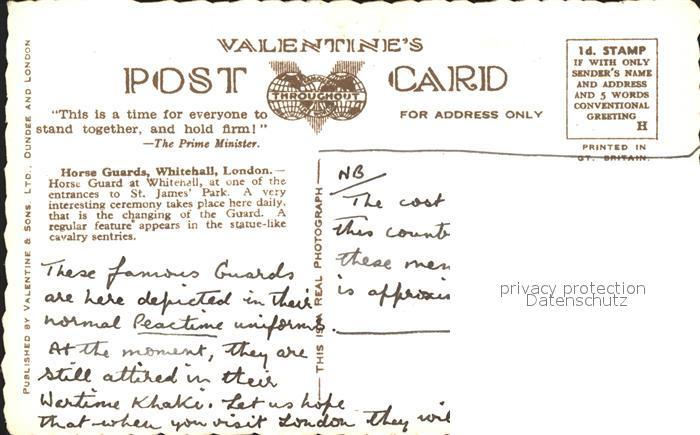 VALENTINE'S
POST CARD
THROUGHOUT
FOR ADDRESS ONLY
1d. STAMP
IF WITH ONLY
SENDER'S NAME
AND ADDRESS
AND 5 WORDS
CONVENTIONAL
GREETING
H
PRINTED IN
GT. BRITAIN.
"This is a time for everyone to
stand together, and hold firm!"
—The Prime Minister.
Horse Guards, Whitehall, London.—
Horse Guard at Whitehall, at one of the
entrances to St. James' Park. A very
interesting ceremony takes place here daily,
that is the changing of the Guard. A
regular feature appears in the statue-like
cavalry sentries.
PUBLISHED BY VALENTINE & SONS, LTD., DUNDEE AND LONDON
THIS IS A REAL PHOTOGRAPH
These famous Guards
are here depicted in their
normal Peactime uniform.
At the moment, they are
still attired in their
Wartime Khaki. Let us hope
that when you visit London they wil
NB
The cost
this count
these men
is approxi
privacy protection
Datenschutz